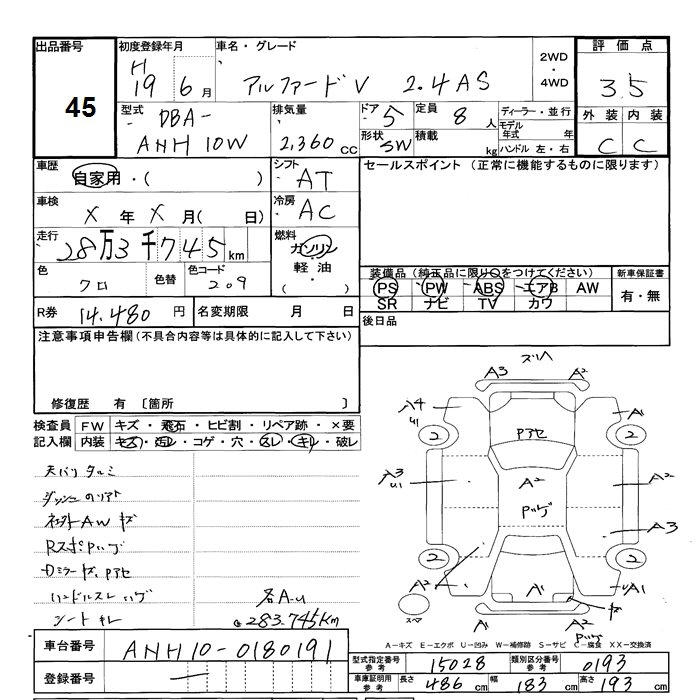 出品番号 初度登録年月 車名・グレード 2WD・4WD 評価点
45 H 19 6月 アルファードV 2.4AS 3.5
型式 DBA-ANH10W 排気量 2,360cc ドア 5 定員 8人 ディーラー・並行 外装 内装
形状 SW 積載 kg モデル年式 年 C C
ハンドル 左・右
車歴 自家用・( ) シフト AT セールスポイント (正常に機能するものに限ります)
車検 X年X月( 日) 冷房 AC
走行 28万3千745km 燃料 ガソリン 軽油・( )
色 クロ 色替 色コード 209 装備品 (純正品に限り○をつけてください) 新車保証書
PS PW ABS エアB AW 有・無
SR ナビ TV カワ
R券 14,480円 名変期限 月 日 後日品
注意事項申告欄(不具合内容等は具体的に記入して下さい)
修復歴 有 〔箇所 〕
検査員記入欄 FW キズ・飛石・ヒビ割・リペア跡・×要
内装 キズ・汚レ・コゲ・穴・スレ・キレ・破レ
天バリタルミ
AWキズ
ハンドルスレ ハゲ
シートキレ
各A-U
283.745Km
A3 A2
A1
2 2
Pアセ
A2
Pハゲ
A2
A3
2 2
A2
A1
UA1
キズ
Pハゲ
スペア
A-キズ E-エクボ U-凹み W-補修跡 S-サビ C-腐食 XX-交換済
車台番号 ANH10-0180191
登録番号 —
型式指定番号 参考 15028 類別区分番号 参考 0193
車庫証明用 参考 長さ 486cm 幅 183cm 高さ 193cm